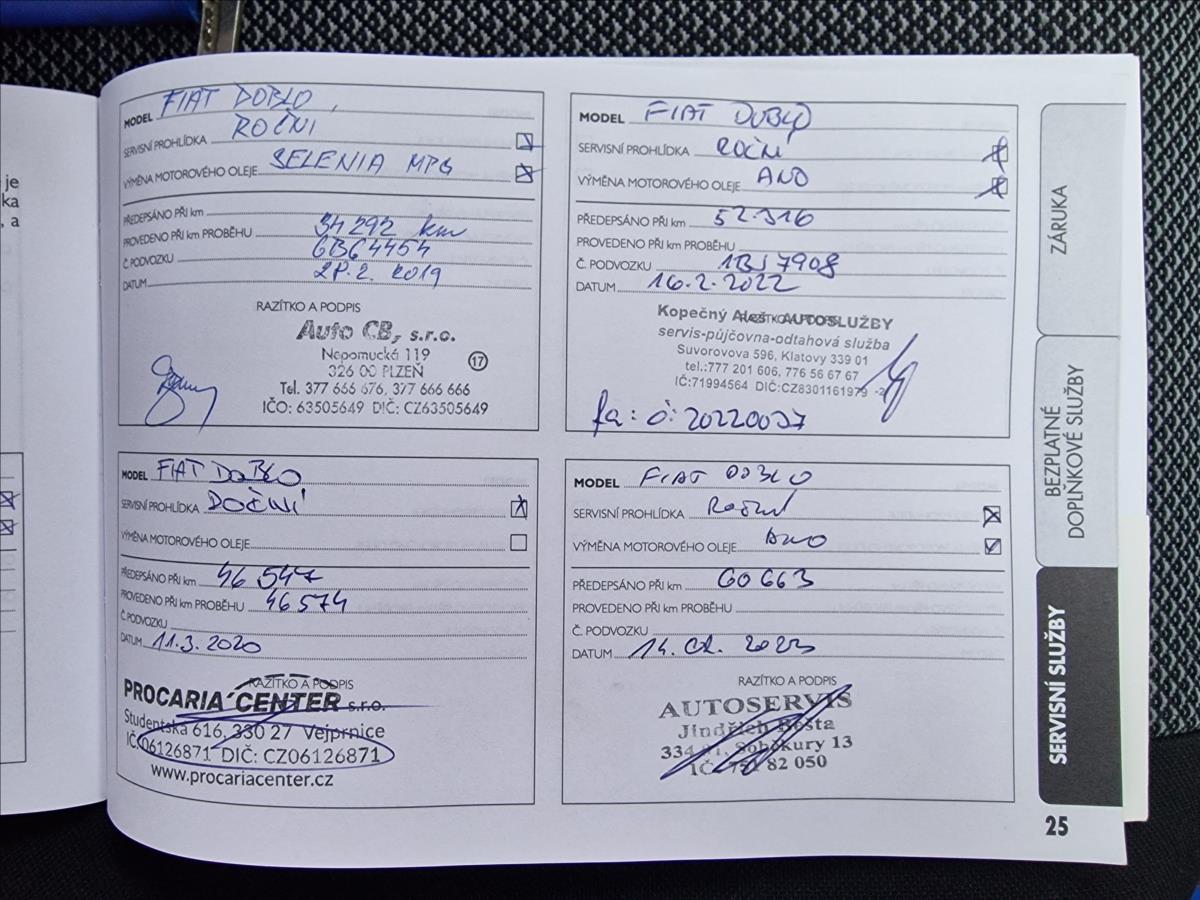 je
ka
, a
MODEL FIAT DOBLO
SERVISNÍ PROHLÍDKA ROČNI
VÝMĚNA MOTOROVÉHO OLEJE SELENIA MPG
PŘEDEPSÁNO PŘI km
PROVEDENO PŘI KM PROBĚHU 34 292 km
Č. PODVOZKU 6B64454
DATUM 2019
RAZÍTKO A PODPIS
Auto CB, s.r.o.
Nepomucká 119
326 00 PLZEŇ
17
Tel. 377 666 676, 377 666 666
IČO: 63505649 DIČ: CZ63505649
MODEL FIAT DOBLO
SERVISNÍ PROHLÍDKA ROČNÍ
VÝMĚNA MOTOROVÉHO OLEJE ANO
PŘEDEPSÁNO PŘI km 52.316
PROVEDENO PŘI KM PROBĚHU
Č. PODVOZKU 1BJ7908
DATUM 16.2.2022
RAZÍTKO A PODPIS
Kopečný Aleš AUTOSLUŽBY
servis-půjčovna-odtahová služba
Suvorovova 596, Klatovy 339 01
tel.:777 201 606, 776 56 67 67
IČ:71994564 DIČ:CZ8301161979 -2-
fa: č: 20220037
MODEL FIAT DOBLO
SERVISNÍ PROHLÍDKA ROČNÍ
VÝMĚNA MOTOROVÉHO OLEJE
PŘEDEPSÁNO PŘI km 46 547
PROVEDENO PŘI KM PROBĚHU 46574
Č. PODVOZKU
DATUM 11.3.2020
RAZÍTKO A PODPIS
PROCARIA CENTER s.r.o.
Studentská 616, 330 27 Vejprnice
IČ:06126871 DIČ: CZ06126871
www.procariacenter.cz
MODEL FIAT DOBLO
SERVISNÍ PROHLÍDKA Roční
VÝMĚNA MOTOROVÉHO OLEJE ANO
PŘEDEPSÁNO PŘI km 60 663
PROVEDENO PŘI KM PROBĚHU
Č. PODVOZKU
DATUM 14. 02. 2023
RAZÍTKO A PODPIS
AUTOSERVIS
Jindřich Bošta
334 Soběkury 13
IČ: 82 050
ZÁRUKA
BEZPLATNÉ
DOPLŇKOVÉ SLUŽBY
SERVISNÍ SLUŽBY
25